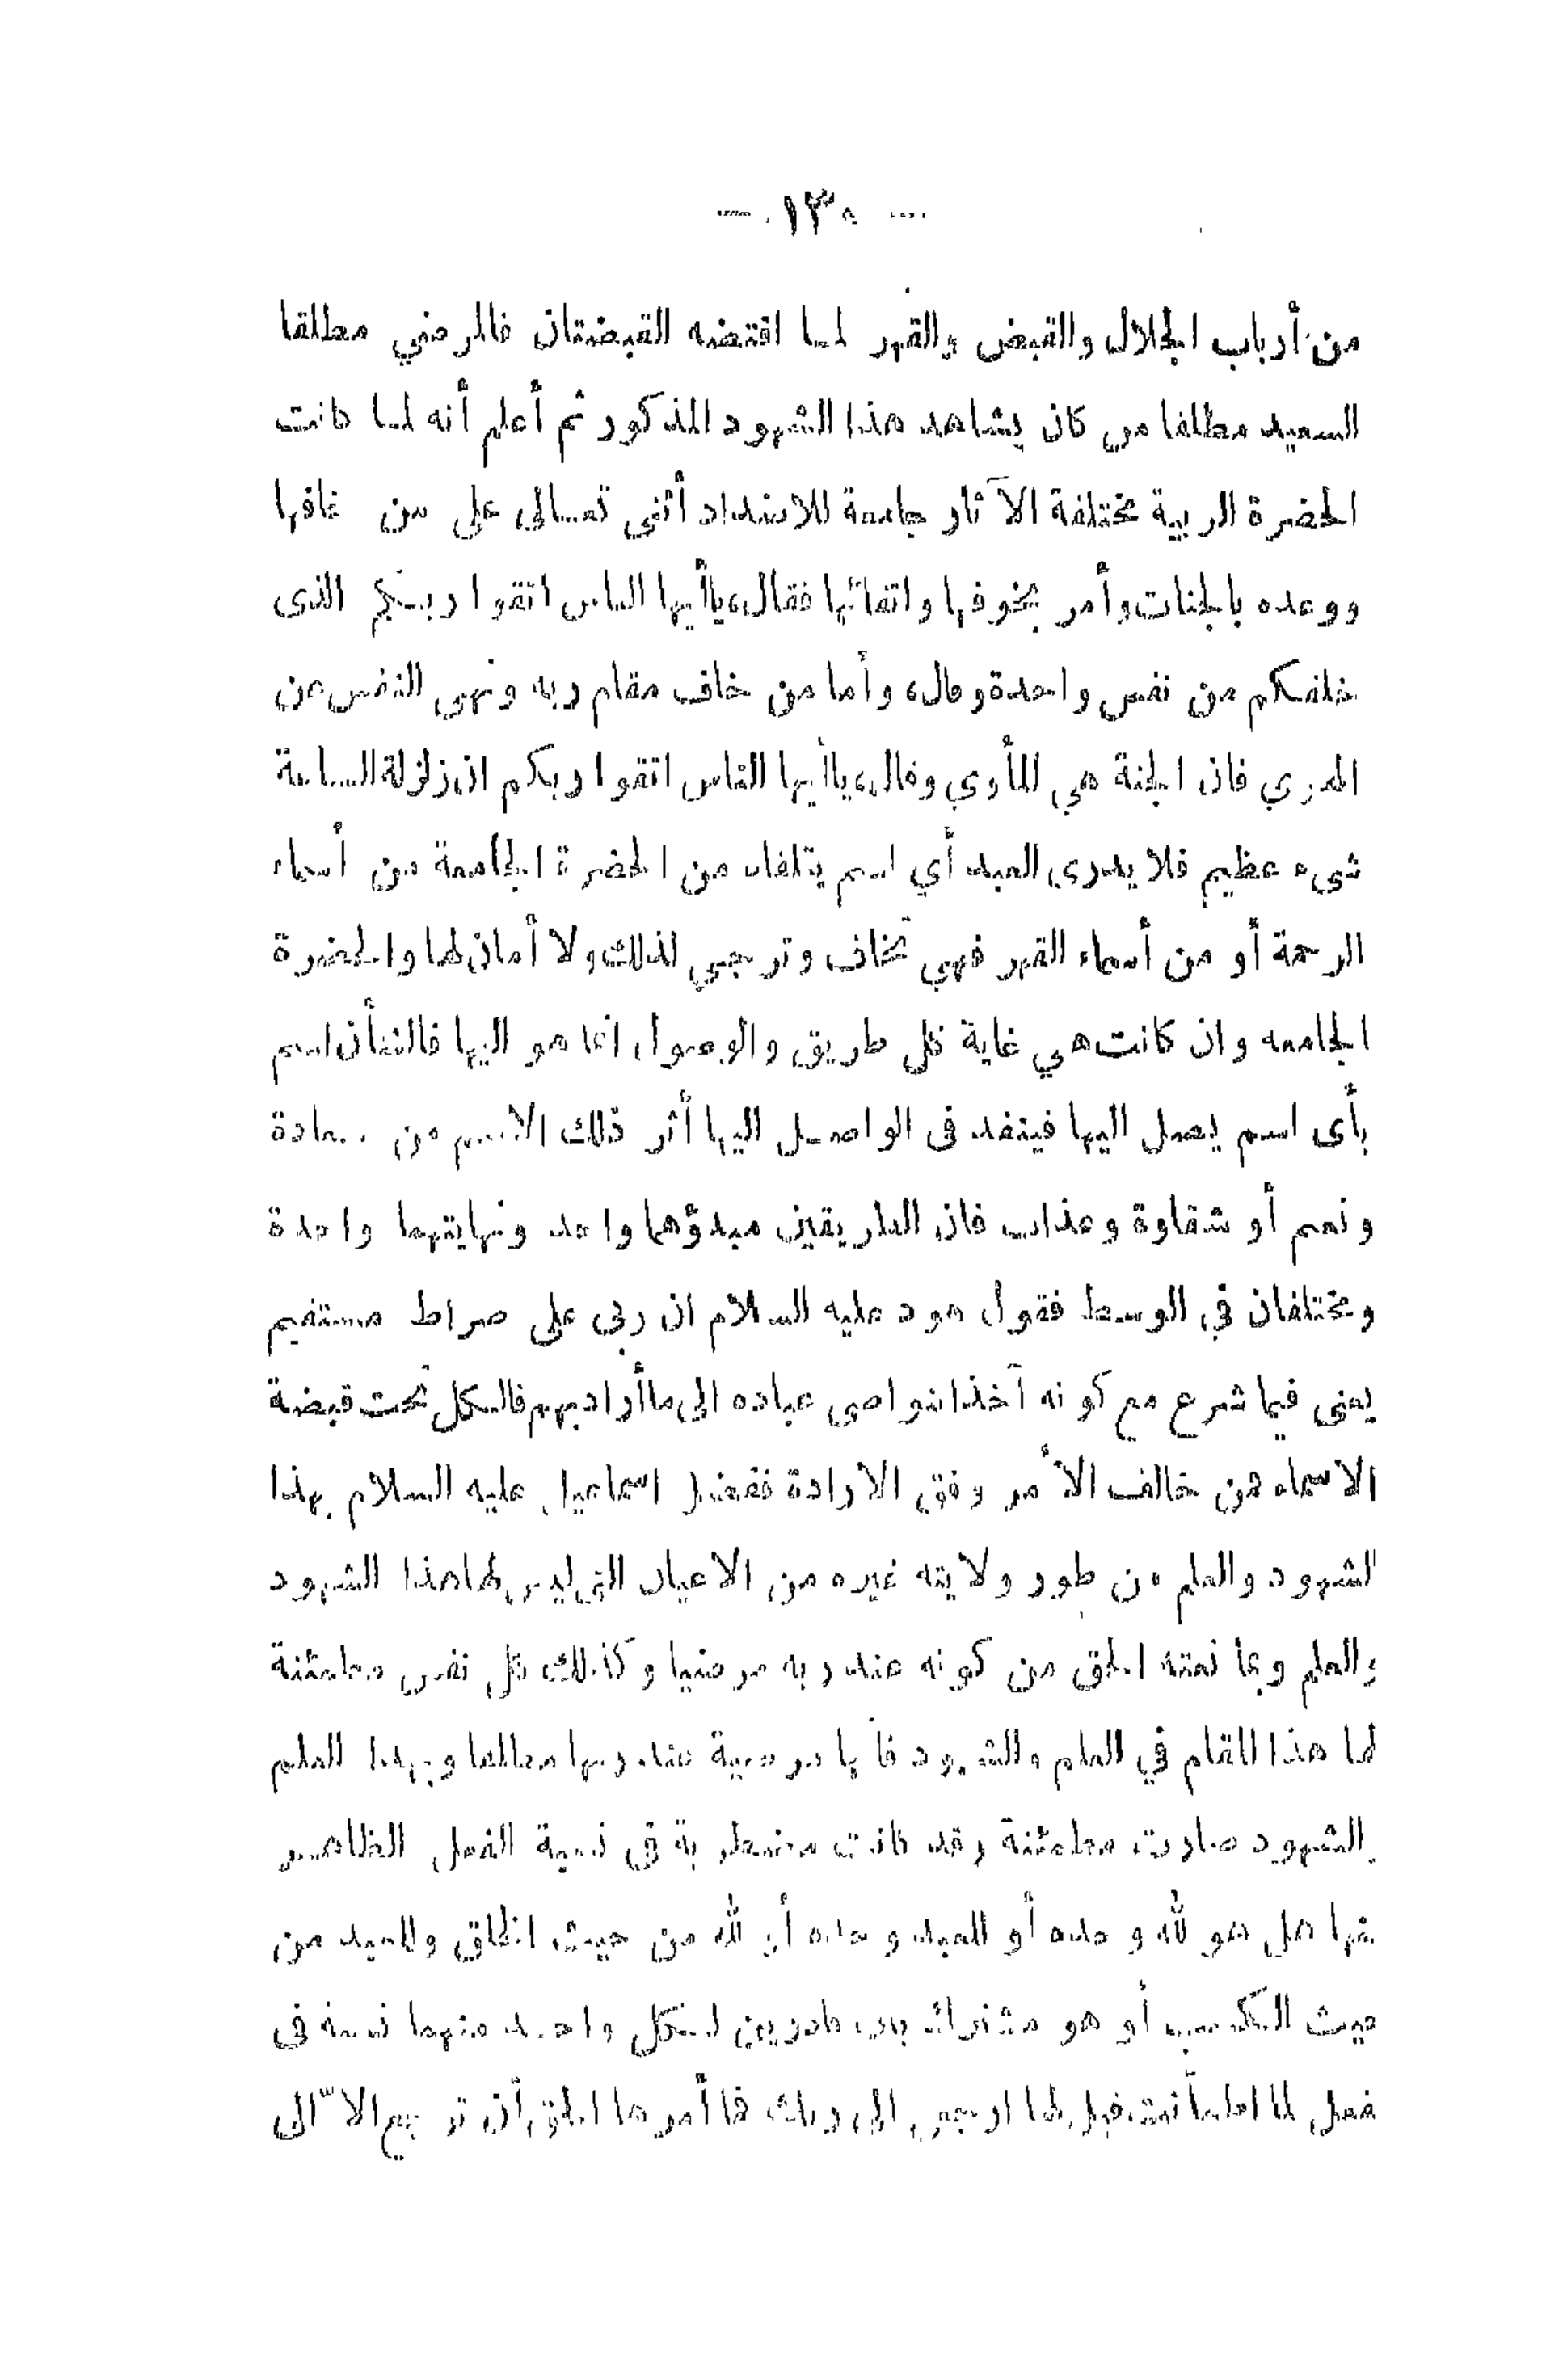 — ١٣٠ —
من أرباب الجلال والقبض والقهر لما اقتضه القبضتان فالمرضي مطلقا
السعيد مطلقا من كان يشاهد هذا الشهود المذكور ثم أعلم أنه لما كانت
الحضرة الربية مختلفة الآثار جامعة للاضداد أثنى تعالى على من خافها
ووعده بالجنات وأمر بخوفها واتقائها فقال، ياأيها الناس اتقوا ربكم الذى
خلقكم من نفس واحدة وقال، وأما من خاف مقام ربه ونهى النفس عن
الهوي فان الجنة هي المأوي وقال، ياأيها الناس اتقوا ربكم ان زلزلة الساعة
شىء عظيم فلا يدرى العبد أي اسم يتلقاه من الحضرة الجامعة من أسماء
الرحمة أو من أسماء القهر فهي تخاف وترجي لذلك ولا أمان لها والحضرة
الجامعه وان كانت هي غاية كل طريق والوصول انما هو اليها فالشأن اسم
بأى اسم يصل اليها فينفد فى الواصل اليها أثر ذلك الاسم من سعادة
ونعيم أو شقاوة وعذاب فان الطريقين مبدؤهما واحد ونهايتهما واحدة
ومختلفان في الوسط فقول هود عليه السلام ان ربى على صراط مستقيم
يعنى فيما شرع مع كونه آخذا بنواصى عباده الى ما أراد بهم فالكل تحت قبضة
الاسماء فمن خالف الأمر وفق الارادة ففضل اسماعيل عليه السلام بهذا
الشهود والعلم من طور ولايته غيره من الاعيان التي ليس لها هذا الشهود
والعلم وبما نعته الحق من كونه عند ربه مرضيا وكذلك كل نفس مطمئنة
لها هذا المقام في العلم والشهود فانها مرضية عند ربها مطلقا وبهذا العلم
والشهود صارت مطمئنة وقد كانت مضطربة فى نسبة الفعل الظاهر
عنها هل هو لله وحده أو للعبد وحده أو لله من حيث الخلق وللعبد من
حيث الكسب أو هو مشترك بين قادرين لكل واحد منهما نسبة فى
الفعل لما اطمأنت فيل لها ارجعى الى ربك فما أمرها الحق أن ترجع الا الى